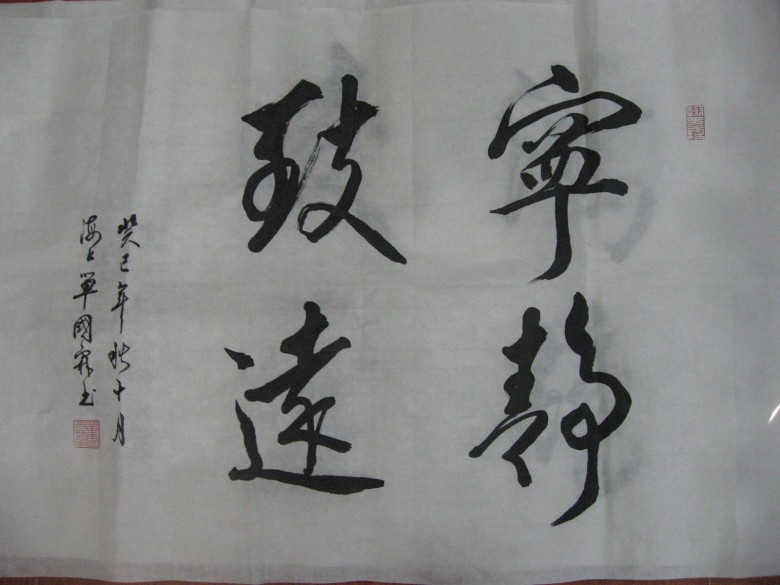 寧靜
致遠
癸巳年秋十月
海上單國霖书